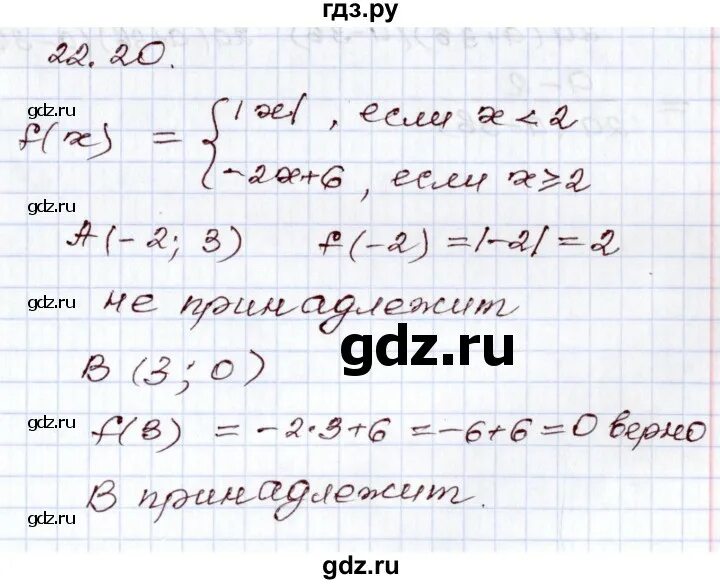 гдз.ру
22.20.
gdz.ru
f(x) = { |x|, если x < 2
-2x+6, если x ≥ 2
gdz.ru
A(-2; 3) f(-2) = |-2| = 2
gdz.ru
не принадлежит
gdz.ru
B (3; 0)
gdz.ru
f(3) = -2·3+6 = -6+6 = 0 верно
B принадлежит.
gdz.ru
gdz.ru